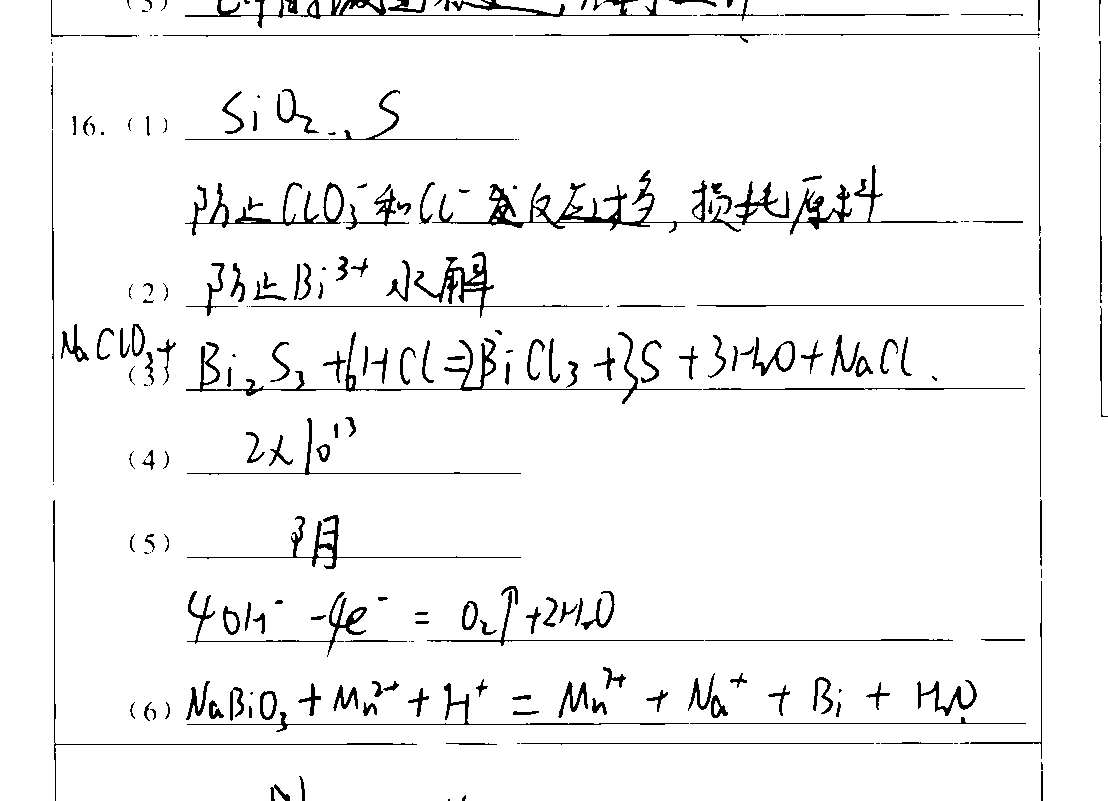 (5)
16. (1) SiO₂、S
防止ClO₃⁻和Cl⁻发反应过多,损耗原料
(2) 防止Bi³⁺水解
(3) NaClO₃+Bi₂S₃+6HCl=2BiCl₃+3S+3H₂O+NaCl.
(4) 2×10¹³
(5) 阴
4OH⁻-4e⁻=O₂↑+2H₂O
(6) NaBiO₃+Mn²⁺+H⁺=Mn⁷⁺+Na⁺+Bi+H₂O